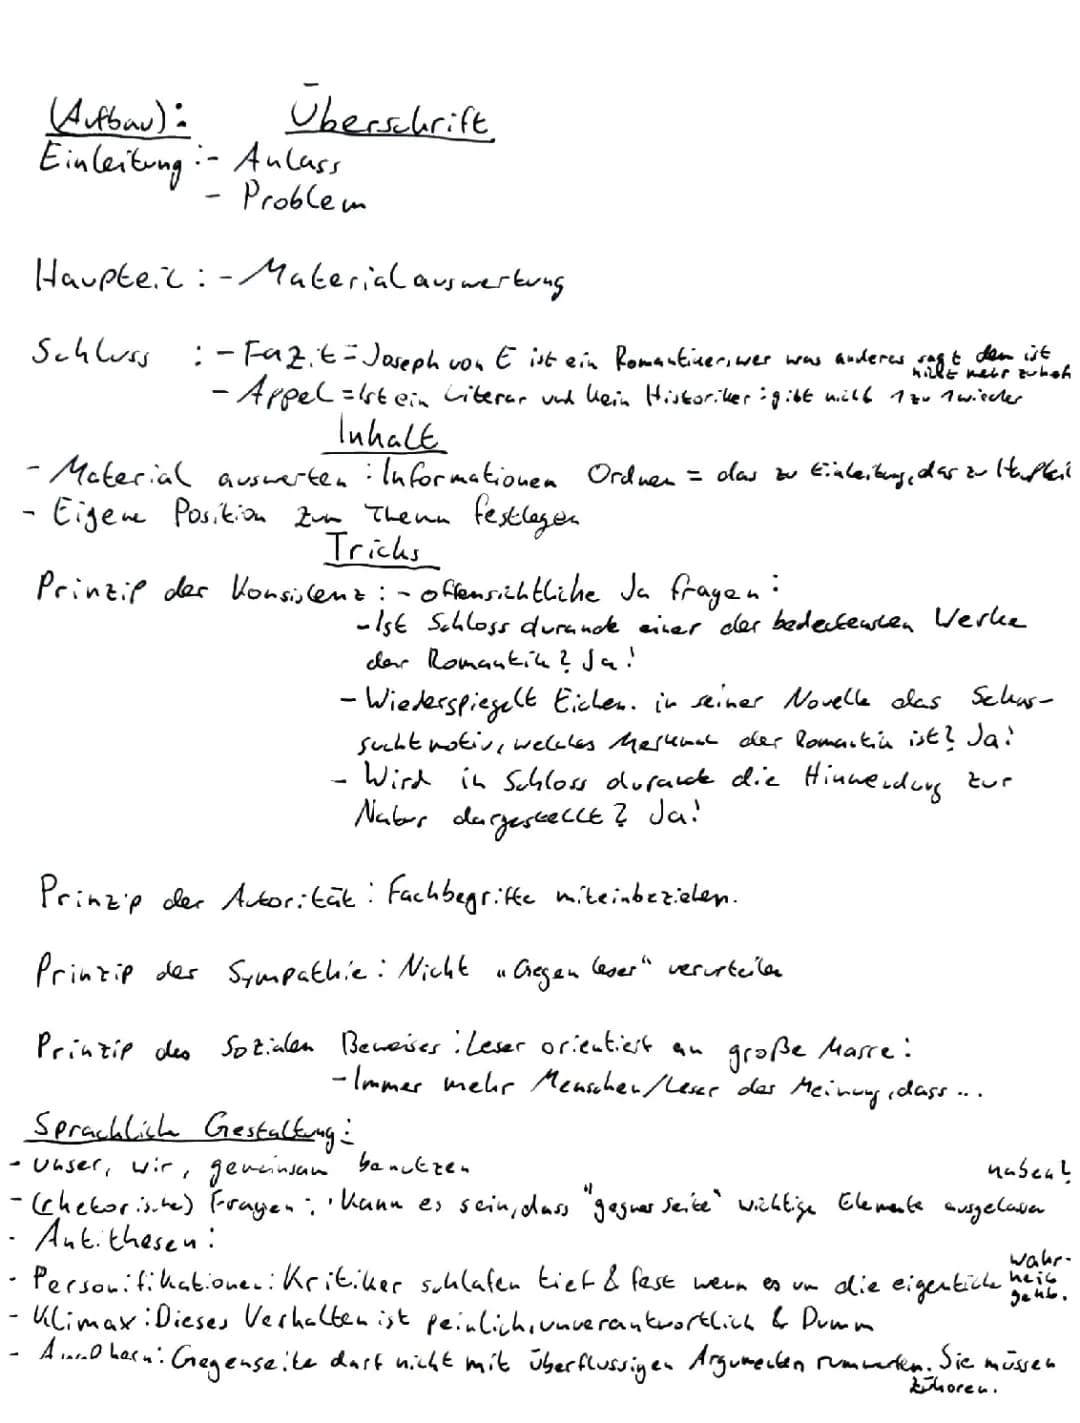 (Aufbau): Überschrift
Einleitung:- Anlass
- Problem
Haupteil:- Materialauswertung
Schluss :- Fazit= Joseph von E ist ein Romantiker, wer was anderes sagt dem ist
nicht mehr zu helf
- Appel = Ist ein Literar und kein Historiker: gibt nicht 1 zu 1 wieder
Inhalt
- Material auswerten: Informationen Ordnen = das zu Einleitung, das zu Hauptteil
- Eigene Position zum Thema festlegen
Tricks
Prinzip der Konsistenz:- offensichtliche Ja fragen:
- Ist Schloss durande einer der bedeutensten Werke
der Romantik? Ja!
- Wiederspiegelt Eichen. in seiner Novelle das Sehns-
suchtmotiv, welches Merkmal der Romantik ist? Ja!
- Wird in Schloss durande die Hinwendung zur
Natur dargestellt? Ja!
Prinzip der Autorität: Fachbegriffe miteinbeziehen.
Prinzip der Sympathie: Nicht „Gegen leser" verurteilen
Prinzip des Sozialen Beweises: Leser orientiert an große Masse:
- Immer mehr Menschen/Leser der Meinung, dass ...
Sprachlich Gestaltung:
- Unser, wir, gemeinsam benutzen
haben?
- (rhetorische) Fragen: Kann es sein, dass "gegner Seite" wichtige Elemente ausgelassen
- Antithesen:
wahr-
- Personifikationen: Kritiker schlafen tief & fest wenn es um die eigentliche heit
geht.
- Klimax: Dieses Verhalten ist peinlich, unverantwortlich & Dumm
- Gegenseite darf nicht mit überflussigen Argumenten rumwerfen. Sie müssen
zuhören.